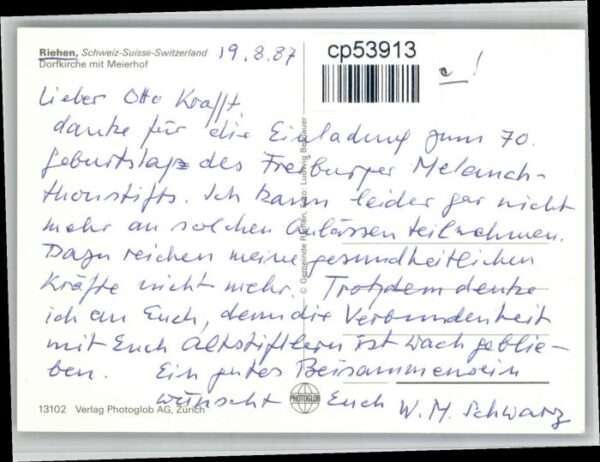 Riehen, Schweiz-Suisse-Switzerland
Dorfkirche mit Meierhof
19.8.87
cp53913
e!
Lieber Otto Krafft
danke für die Einladung zum 70.
Geburtstag des Freiburger Melanch-
thonstifts. Ich kann leider gar nicht
mehr an solchen Anlässen teilnehmen.
Dazu reichen meine gesundheitlichen
Kräfte nicht mehr. Trotzdem denke
ich an Euch, denn die Verbundenheit
mit Euch Altstiftlern ist wach geblie-
ben. Ein gutes Beisammensein
wünscht Euch W. M. Schwarz
© Gemeinde Riehen, Foto: Ludwig
PHOTOGLOB
13102 Verlag Photoglob AG, Zürich